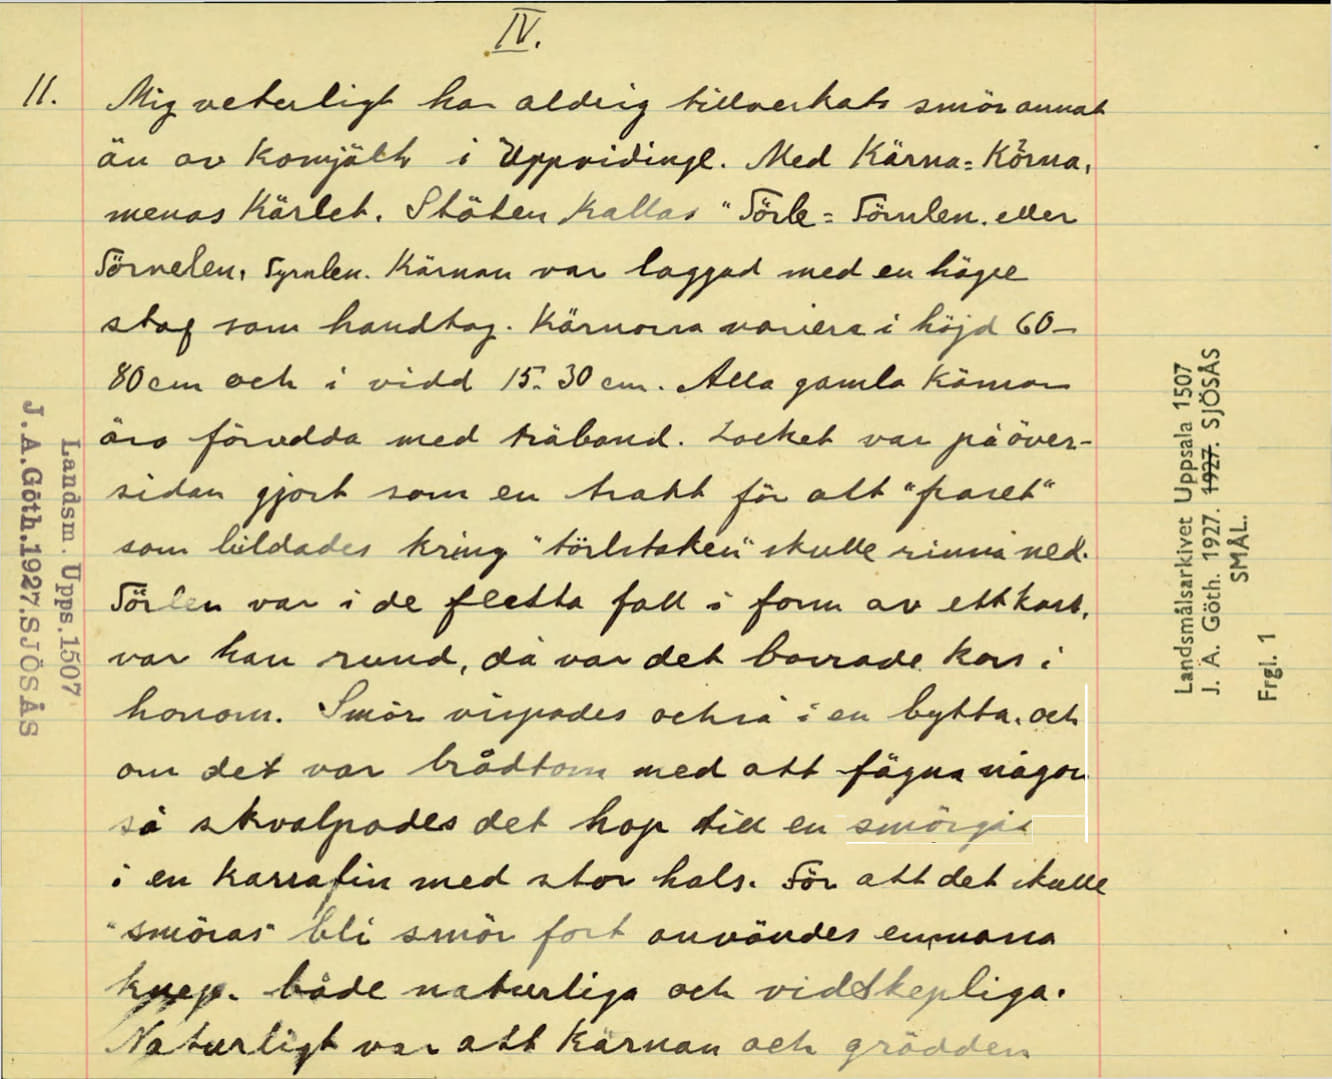 IV.
11. Mig veterligt har aldrig tillverkats smör annat
än av komjölk i Uppvidinge. Med Kärna = Körna,
menas Kärlet. Stöten kallas "Törle = Törnlen. eller
Törnelen, Tyrnlen. Kärnan var laggad med en högre
staf som handtag. Kärnorna variera i höjd 60–
80 cm och i vidd 15–30 cm. Alla gamla Kärnor
äro försedda med träband. Locket var på över-
sidan gjort som en tratt för att "fraset"
som bildades kring "törlstaken" skulle rinna ned.
Törlen var i de flesta fall i form av ett kors,
var han rund, då var det borrade kors i
honom. Smör vispades också i en bytta, och
om det var brådtom med att fägna någon
så skvalpades det hop till en smörgås
i en karrafin med stor hals. För att det skulle
"smöras" bli smör fort användes en massa
knep. både naturliga och vidskepliga.
Naturligt var att Kärnan och grädden
Landsm. Upps. 1507
J.A.Göth.1927.SJÖSÅS
Landsmålsarkivet Uppsala 1507
J. A. Göth. 1927. 1927. SJÖSÅS
SMÅL.
Frgl. 1